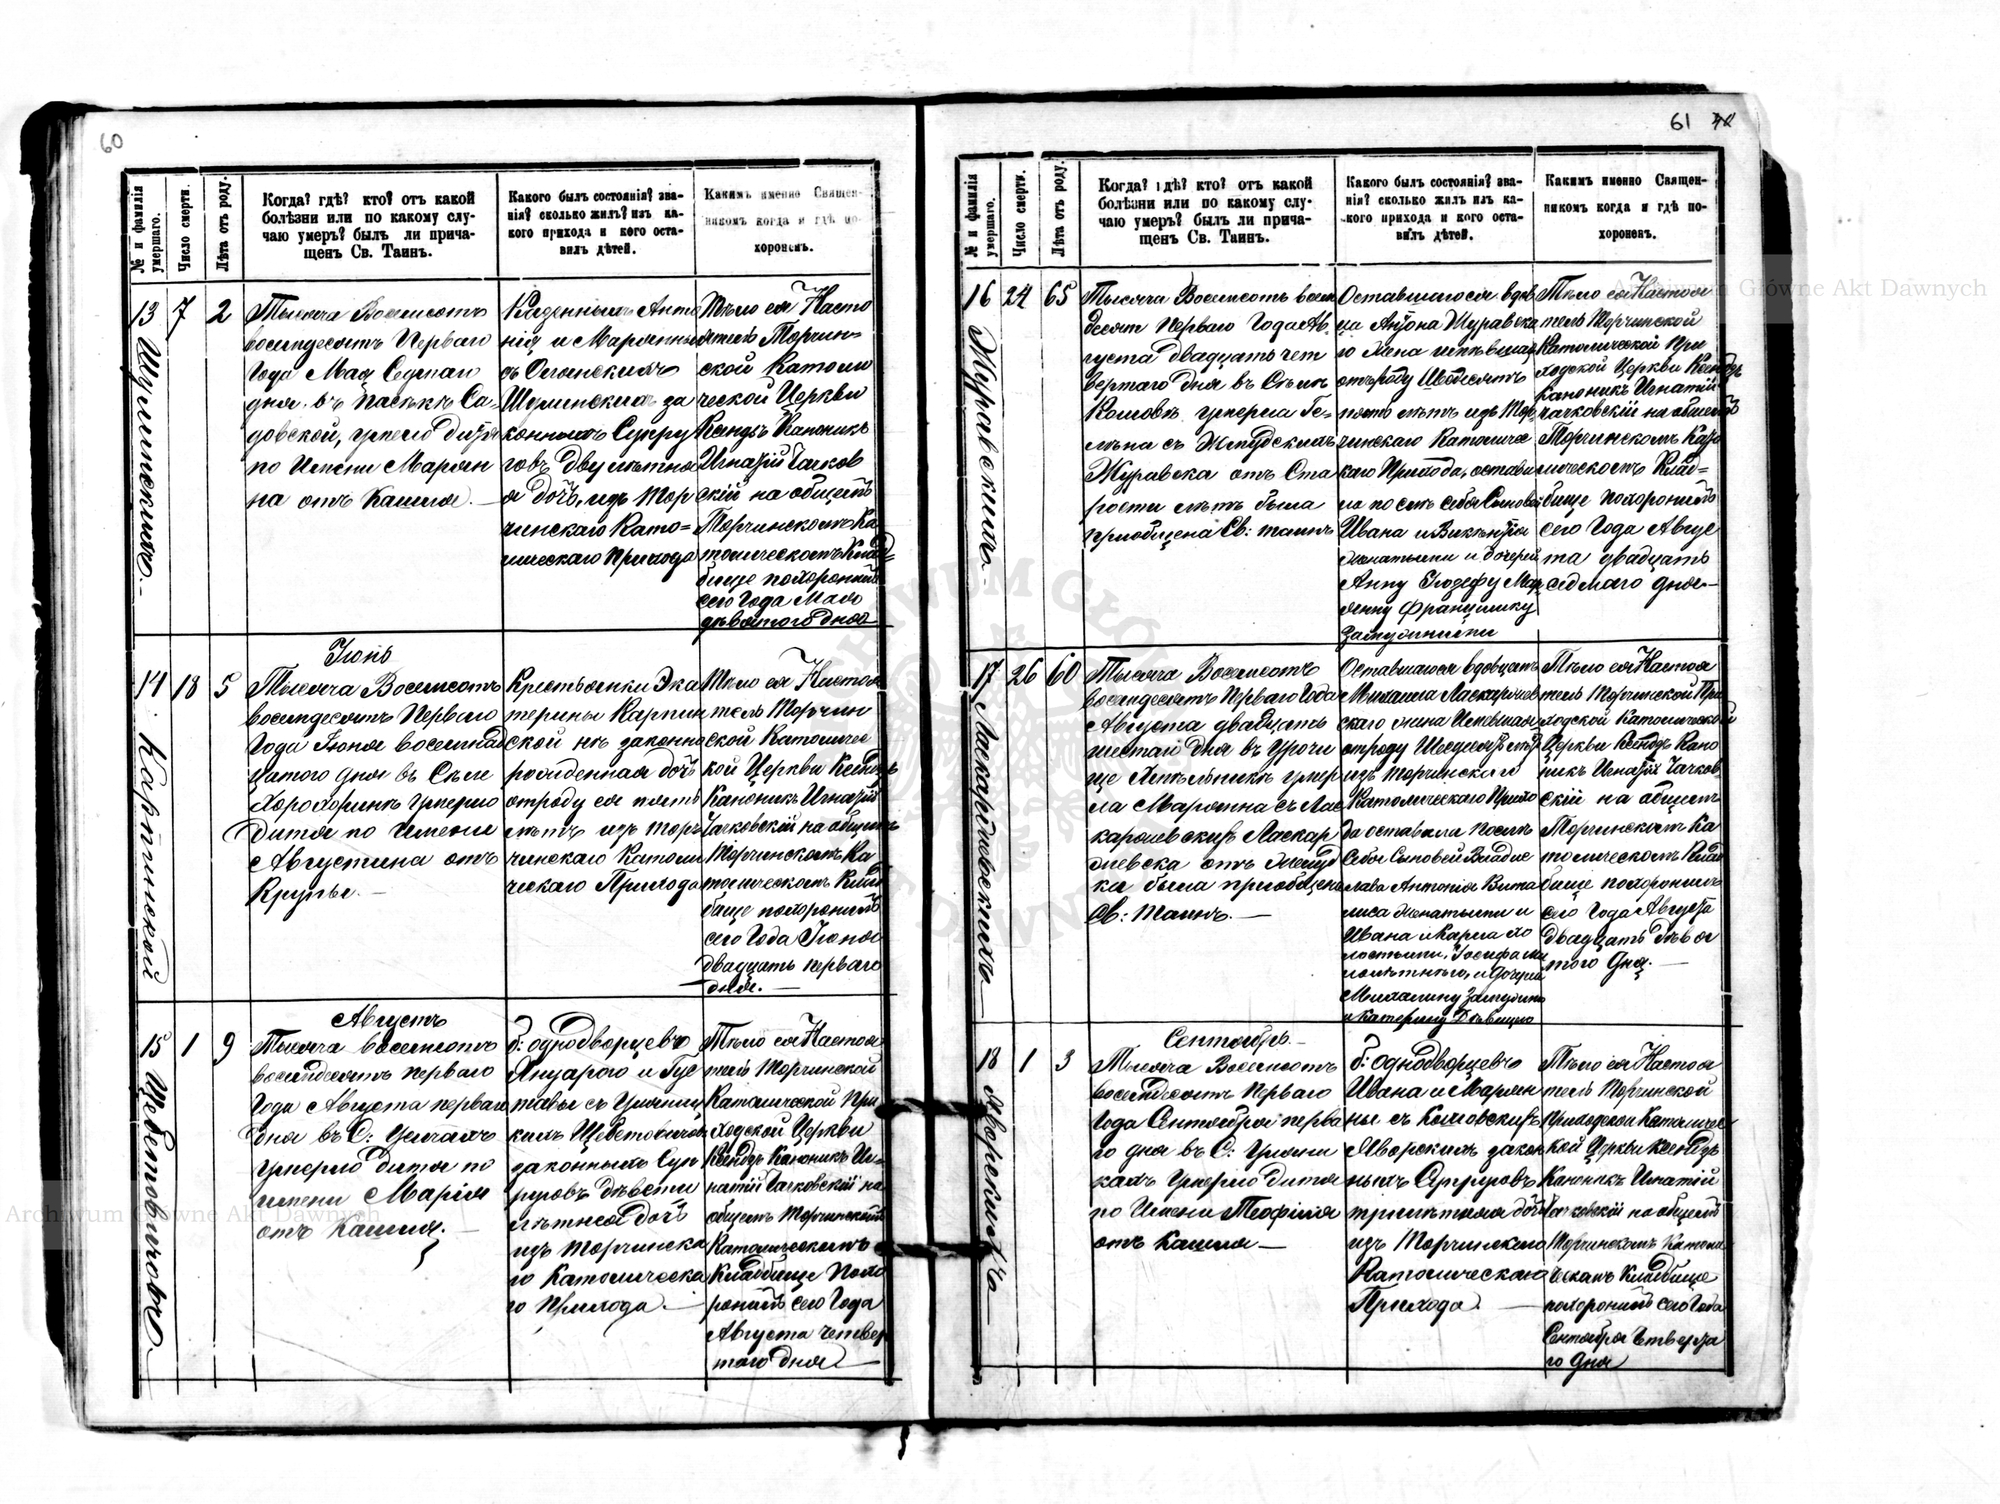 60
№ и фамилія умершаго.
Число смерти.
Лѣта отъ роду.
Когда? гдѣ? кто? отъ какой
болѣзни или по какому слу-
чаю умеръ? былъ ли прича-
щенъ Св. Таинъ.
Какого былъ состоянія? зва-
нія? сколько жилъ? изъ ка-
кого прихода и кого оста-
вилъ дѣтей.
Какимъ именно Священ-
никомъ когда и гдѣ по-
хороненъ.
13
7
2
Тысяча Восемсотъ
восемдесятъ Перваго
Года Мая Седмаго
дня въ
довской, умерло дитя
по Имени Марян
на отъ Кашля.
и Марянны
законныхъ Супру
говъ двулѣтна
я дочь, изъ Тор
чинскаго Като=
лическаго Прихода
Тѣло ея Насто
ятель Торчин=
ской Католи
ческой Церкви
Ксендзъ Каноникъ
Игнатій Чачков
скій на общемъ
Торчинскомъ Ка
толическомъ Клад=
бище похоронилъ
сего Года Мая
девятого дня
Іюнь
14 Карпинской
18
5
Тысяча Восемсотъ
восемдесятъ Перваго
Года Іюня восемнад
цатого дня въ Селе
умерло
Дитя по Имени
Августина отъ
Крупы.
Крестьянки Эка
терины Карпин
ской не законно
рожденная дочь
отроду ея пять
лѣтъ изъ Тор
чинскаго Католи
ческаго Прихода
Тѣло ея Настоя
тель Торчин
ской Католичес
кой Церкви Ксендзъ
Каноникъ Игнатій
Чачковскій на общемъ
Торчинскомъ Ка
толическомъ Клад
бище похоронилъ
сего Года Іюня
двадцать перваго
дня.
Августъ
15
1
9
Тысяча восемсотъ
восемдесятъ перваго
Года Августа перваго
дня въ С:
умерло дитя по
имени Марія
отъ Кашля.
б: однодворцевъ
Януарого и Гус
тавы съ
законныхъ Суп
руговъ девяти
лѣтнея дочь
изъ Торчинска
го Католическа
го Прихода.
Тѣло ея Настоя
тель Торчинской
Католической При
ходской Церкви
Ксендзъ Каноникъ Иг=
натій Чачковскій на
общемъ Торчинскомъ
Католическомъ
Кладбище Похо
ронилъ сего Года
Августа четвер
того дня
61
№ и фамилія умершаго.
Число смерти.
Лѣта отъ роду.
Когда? гдѣ? кто? отъ какой
болѣзни или по какому слу-
чаю умеръ? былъ ли прича-
щенъ Св. Таинъ.
Какого былъ состоянія? зва-
нія? сколько жилъ изъ ка-
кого прихода и кого оста-
вилъ дѣтей.
Какимъ именно Священ-
никомъ когда и гдѣ по-
хороненъ.
16
24
65
Тысяча Восемсотъ восем
десят Перваго Года Ав
густа двадцать чет
вертаго дня въ Селѣ
умерла Ге=
лѣна съ
Журавска отъ Ста
рости лѣтъ была
приобщена Св: таинъ
Оставшагося вдов
ца Антона Журавска
го жена имѣвшая
отъ роду Шестдесятъ
пять лѣтъ изъ Тор
чинскаго Католичес
каго Прихода, остави
ла по сеѣ себя Сыновей
Ивана и Викентія
женатыми и дочерей
Анну Юзефу Мар
янну Францишку
Замужними
Тѣло ея Настоя
тель Торчинской
Католической При
ходской Церкви Ксендзъ
Каноникъ Игнатій
Чачковскій на общемъ
Торчинскомъ Като
лическомъ Клад=
бище похоронилъ
сего Года Авгус
та двадцать
седмаго дня
17
26
60
Тысяча Восемсотъ
восемдесятъ Перваго Года
Августа двадцать
шестаго дня въ Урочи
ще умер
ла Марянна съ Лас
отъ
ка была приобщена
Св: Таинъ.
Оставшагося вдовцемъ
Михаила
скаго жена Имевшая
отроду Шесдесятъ лѣтъ
изъ Торчинскаго
Католическаго Прихо
да оставила Послѣ
Себя Сыновей Владис
лава Антонія Вита
лиса женатыми и
Ивана и Карла хо
лостыми, Іосифа ма
лолѣтнего, и дочерей
Михалину Замужню
и Катерину Девицию
Тѣло ея Настоя
тель Торчинской При
ходской Католической
Церкви Ксендзъ Кано
никъ Игнатій Чачков
скій на общемъ
Торчинскомъ Ка
толическомъ Клад
бище похоронилъ
сего Года Августа
двадцать девя
того дня.
Сентябрь.
18
1
3
Тысяча Восемсотъ
восемдесятъ Перваго
Года Сентября перва
го дня въ С:
умерло дитя
по Имени Теофилія
отъ кашля
б: однодворцевъ
Ивана и Марян
ны съ
закон
ныхъ Супруговъ
трилѣтняя дочь
изъ Торчинскаго
Католическаго
Прихода.
Тѣло ея Настоя
тель Торчинской
Приходской Католичес
кой Церкви Ксендзъ
Каноникъ Игнатій
Чачковскій на общемъ
Торчинскомъ Католи
ческомъ Кладбище
похоронилъ сего Года
Сентября Четверта
го дня
Archiwum Główne Akt Dawnych
Archiwum Główne Akt Dawnych